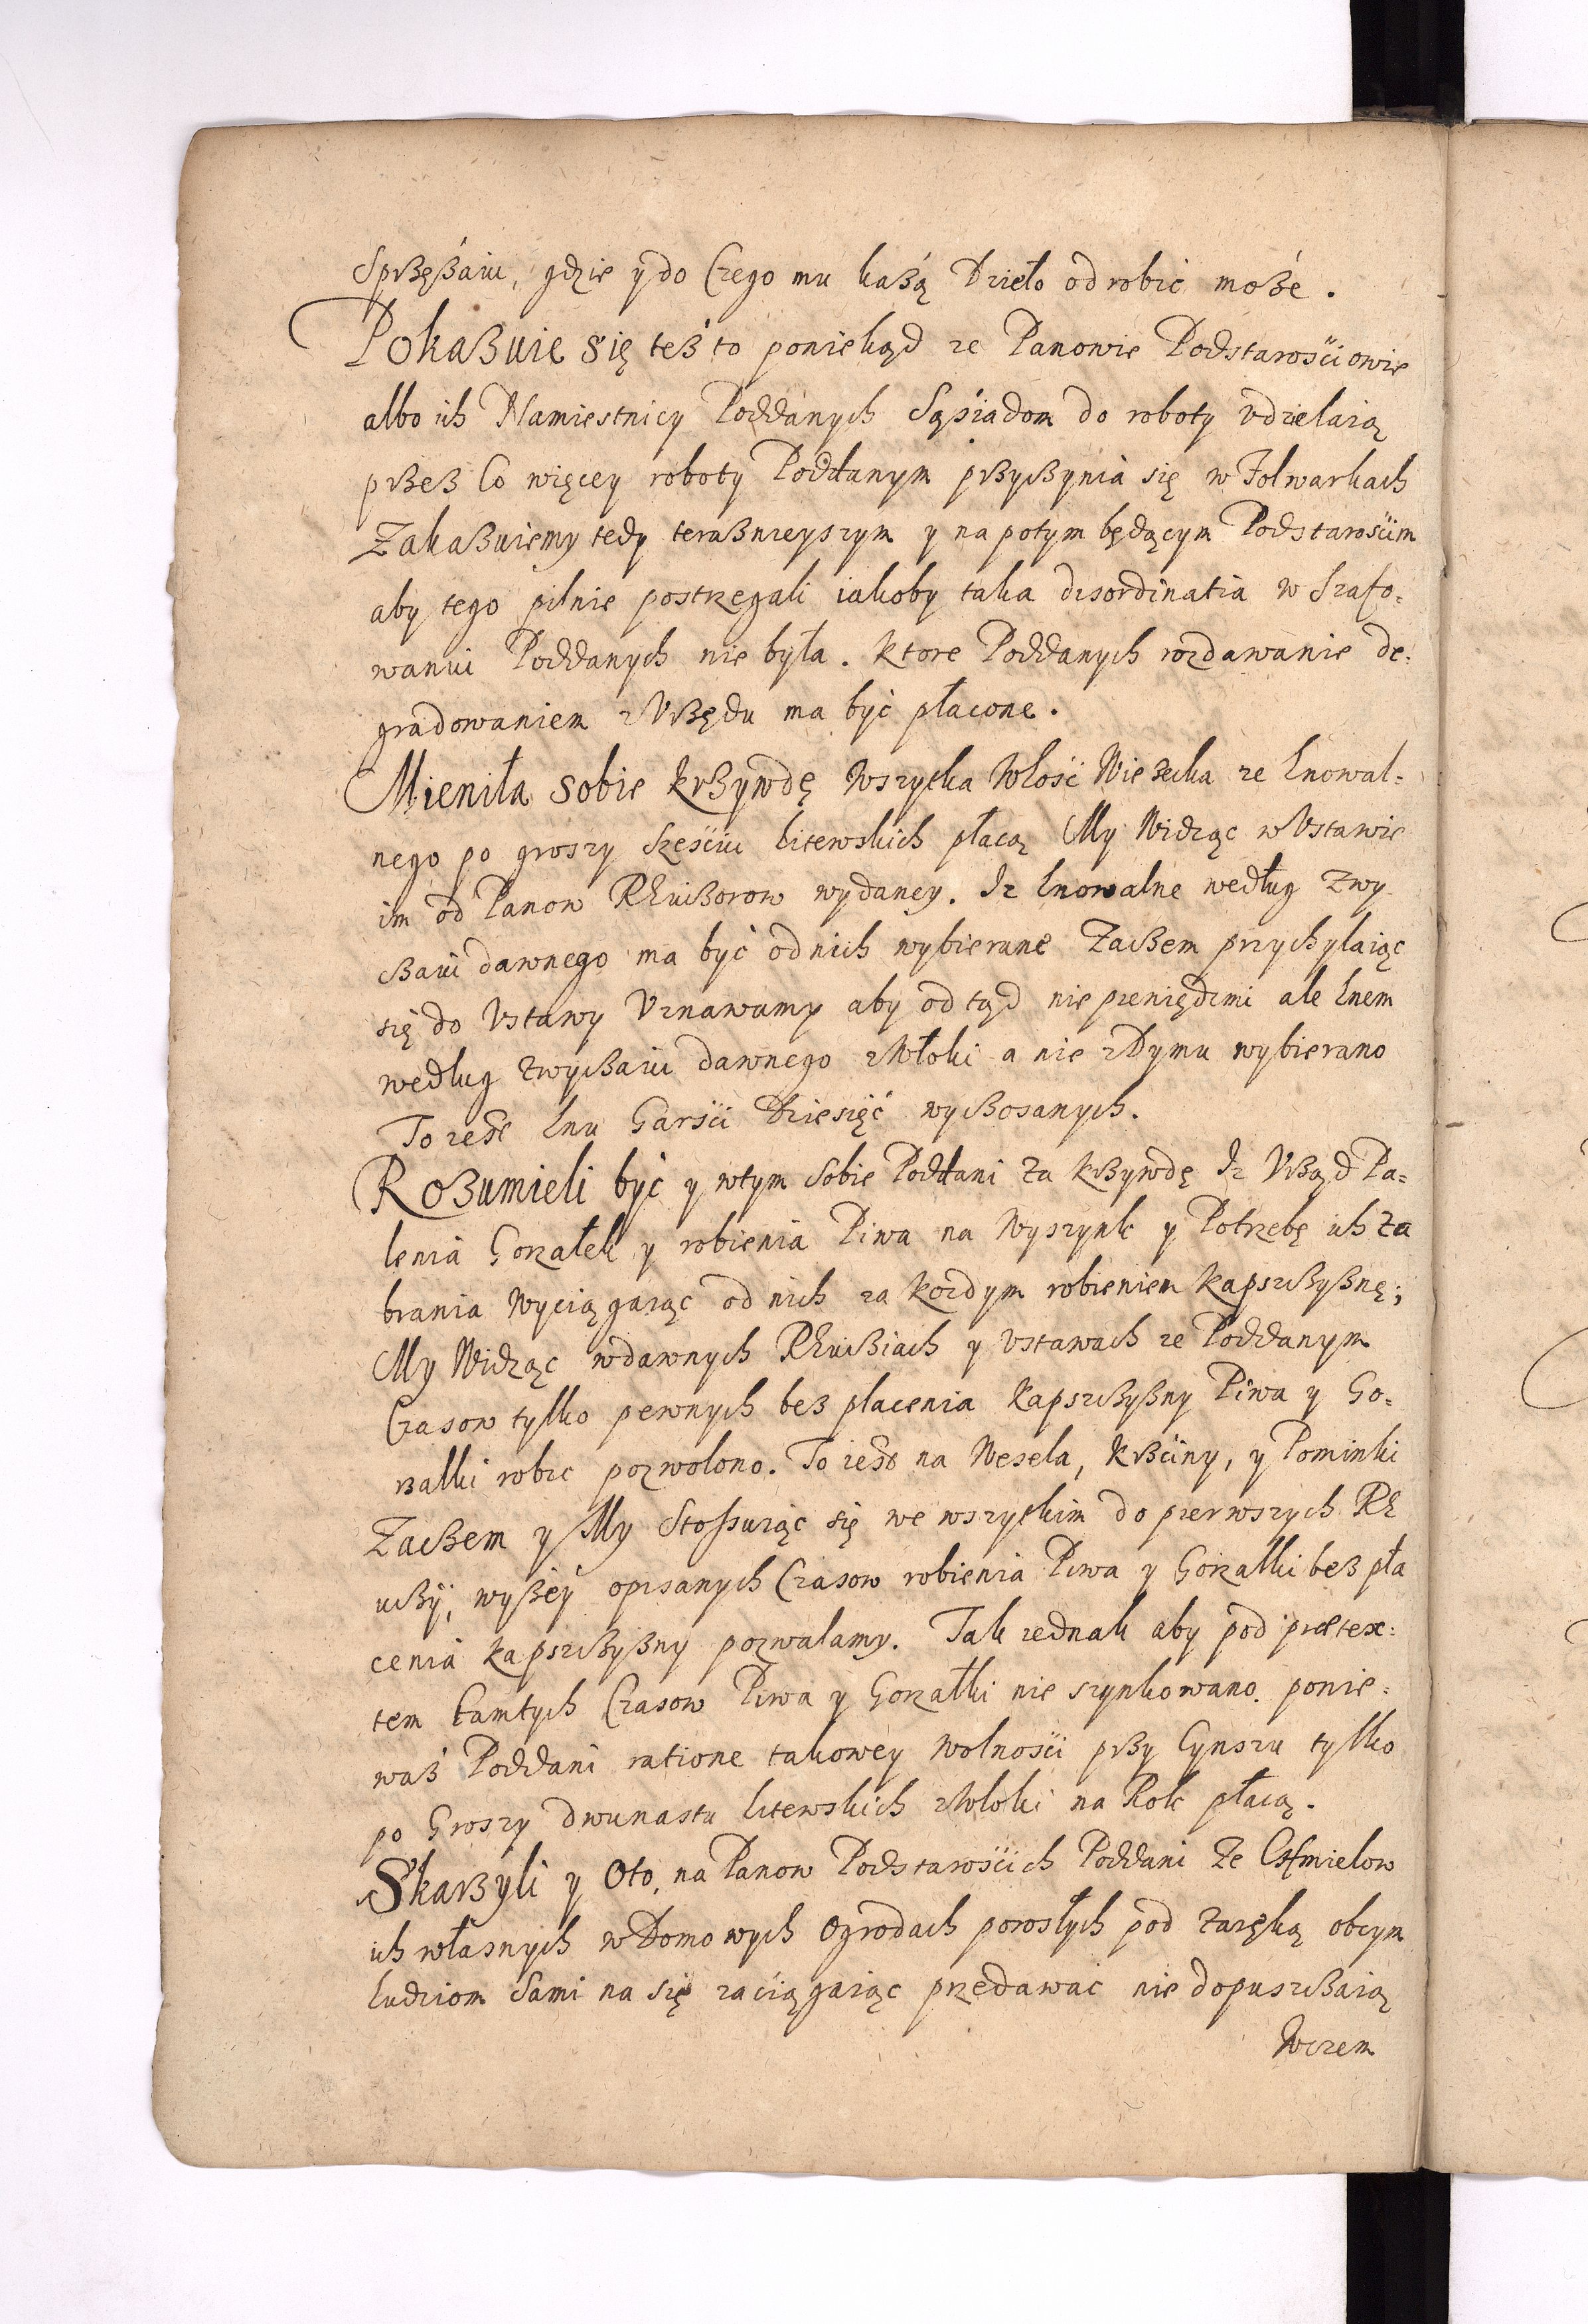 Sprzężaiu, gdzie y do Czego mu każą Dzieło odrobić może.
Pokazuie się też to poniekąd ze Panowie Podstarościowie
albo ich Namiestnicy Poddanych Sąsiadom do roboty vdzielaią
przez Co więcey roboty Poddanym przyczynia się w Folwarkach
Zakazuiemy tedy teraznieyszym y na potym będącym Podstarościm
aby tego pilnie postrzegali iakoby taka disordinatia w Szafo:
waniu Poddanych nie była. Ktore Poddanych rozdawanie de:
gradowaniem z Vrzędu ma być płacone.
Mieniła sobie krzywdę wszytka Włość ze Lnowal:
nego po groszy sześciu litewskich płacą My Widząc w Vstawie
im od Panow Rewizorow wydaney. Iz Lnowalne według zwy
czaiu dawnego ma być od nich wybierane Zaczem przychylaiąc
się do Vstawy Vznawamy aby od tąd nie pieniędzmi ale Lnem
według zwyczaiu dawnego z Włoki a nie z Dymu wybierano
To iest Lnu Garści Dziesięć wyczosanych.
Rozumieli być y w tym sobie Poddani za krzywdę Iz Vrząd Pa:
lenia Gorzałek y robienia Piwa na Wyszynk y Potrzebę ich za
brania Wyciągaiąc od nich za kozdym robieniem kapszczyznę;
My Widząc w dawnych Rewiziach y Vstawach ze Poddanym
Czasow tylko pewnych bez placenia kapszczyzny Piwa y Go:
rzałki robic pozwolono. To iest na Wesela, krzciny, y Pominki
Zaczem y My Stossuiąc się we wszytkim do pierwszych Re
wizy, wyżey opisanych Czasow robienia Piwa y Gorzałki bez pła
cenia kapszczyzny pozwalamy. Tak iednak aby pod prætex:
tem tamtych Czasow Piwa y Gorzałki nie szynkowano. ponie:
waż Poddani ratione takowey wolności przy Cynszu tylko
po Groszy dwunastu litewskich z Włoki na Rok płacą.
Skarzyli y Oto, na Panow Podstarościch Poddani Ze Chmielow
ich własnych w Domowych Ogrodach porosłych pod zaręką obcym
ludziom sami na się zaciągaiąc przedawac nie dopuszczaią
Wczem